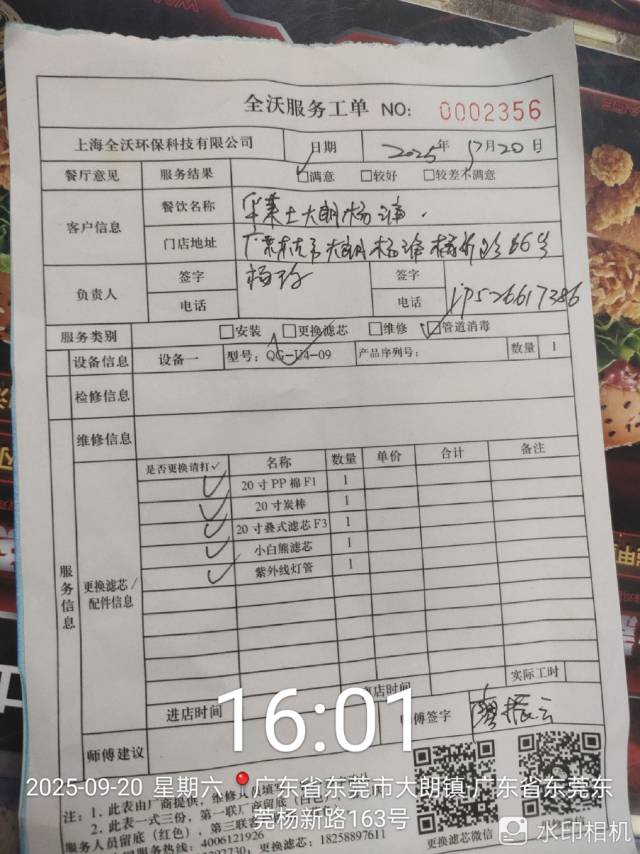 全沃服务工单 NO: 0002356
上海全沃环保科技有限公司 日期 2025年 9月20日
餐厅意见 服务结果 ☑满意 □较好 □较差不满意
客户信息 餐饮名称 华莱士大朗杨涌.
门店地址 大朗杨涌 66号
负责人 签字 签字
电话 电话
服务类别 □安装 ☑更换滤芯 □维修 ☑管道消毒
设备信息 设备一 型号: QG-U4-09 产品序列号: 数量 1
检修信息
维修信息
服务信息
更换滤芯/配件信息
是否更换请打✓ 名称 数量 单价 合计 备注
✓ 20寸PP棉F1 1
✓ 20寸炭棒 1
✓ 20寸叠式滤芯F3 1
✓ 小白熊滤芯 1
✓ 紫外线灯管 1
实际工时
进店时间 店时间
师傅签字 廖振云
师傅建议
16:01
2025-09-20 星期六 广东省东莞市大朗镇广东省东莞东
莞杨新路163号
注: 1、此表由厂商提供，维修人
2、此表一式三份，第一联厂商留底（白色）
服务人员留底（红色），第三联
服务热线: 4006121926
18258897611
更换滤芯微信
水印相机